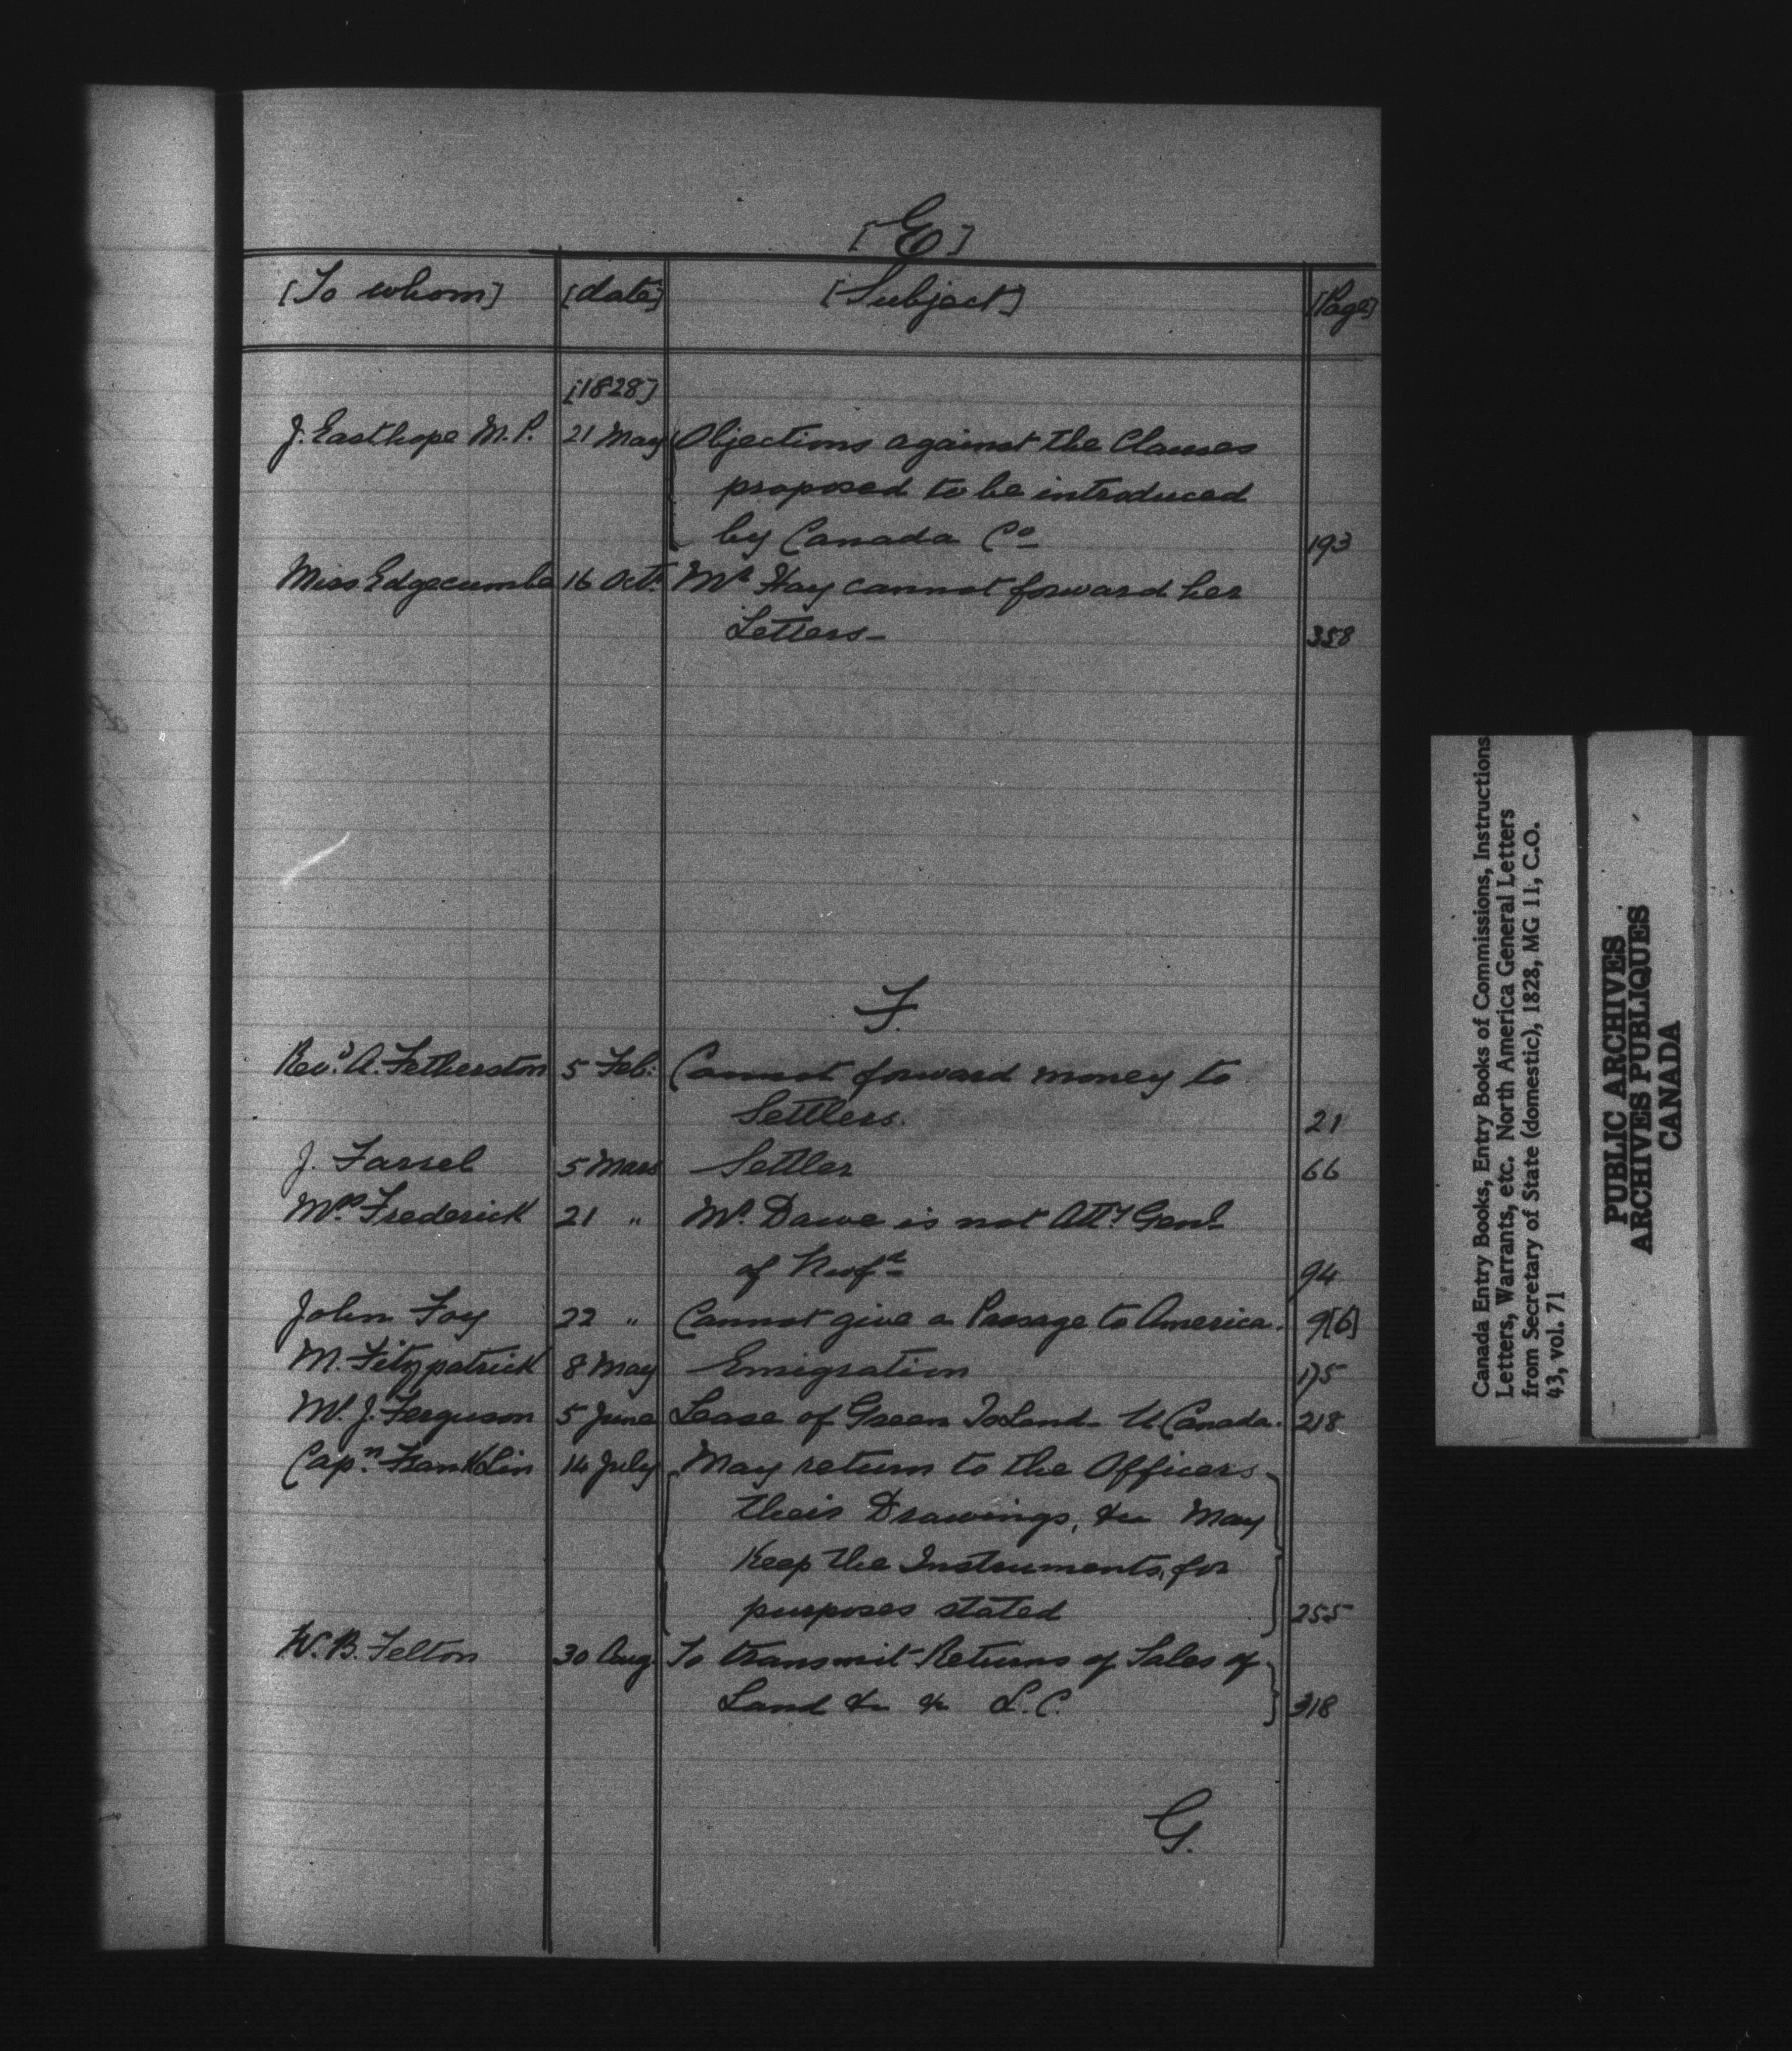 [E]
[To whom] [date] [Subject] [Page]
[1828]
J. Easthope M.P. 21 May Objections against the Clauses
proposed to be introduced
by Canada Co 193
Miss Edgecumbe 16 Octr. Mr Hay cannot forward her
Letters— 358
F.
Revd. A. Fetherston 5 Feb: Cannot forward money to
Settlers. 21
J. Farrel 5 Mars Settler 66
Mrs. Frederick 21 " Mr. Dawe is not Atty Genl
of Newfd 94
John Foy 22 " Cannot give a Passage to America. 9[6]
M. Fitzpatrick 8 May Emigration 175
Mr. J. Ferguson 5 June Lease of Green Island U Canada. 218
Capn. Franklin 14 July May return to the Officers
their Drawings, &c May
Keep the Instruments, for
purposes stated 255
W. B. Felton 30 Aug. To transmit Returns of Sales of
Land &c &c L.C. 318
G.
Canada Entry Books, Entry Books of Commissions, Instructions
Letters, Warrants, etc. North America General Letters
from Secretary of State (domestic), 1828, MG 11, C.O.
43, vol. 71
PUBLIC ARCHIVES
ARCHIVES PUBLIQUES
CANADA